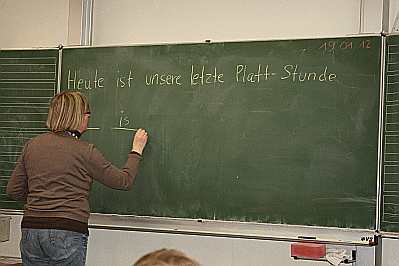 19.01.12
Heute ist unsere letzte Platt-Stunde
is